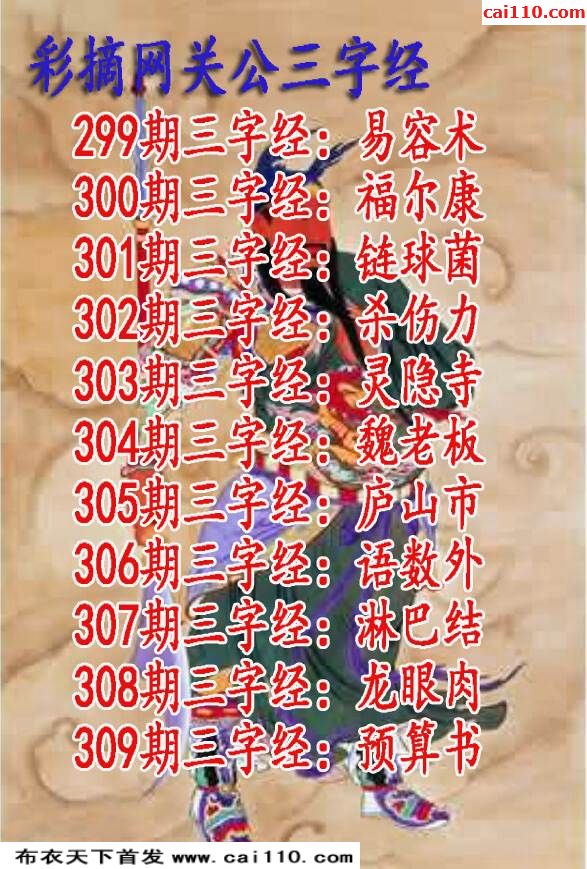 cai110.com
彩摘网关公三字经
299期三字经：易容术
300期三字经：福尔康
301期三字经：链球菌
302期三字经：杀伤力
303期三字经：灵隐寺
304期三字经：魏老板
305期三字经：庐山市
306期三字经：语数外
307期三字经：淋巴结
308期三字经：龙眼肉
309期三字经：预算书
布衣天下首发 www.cai110.com